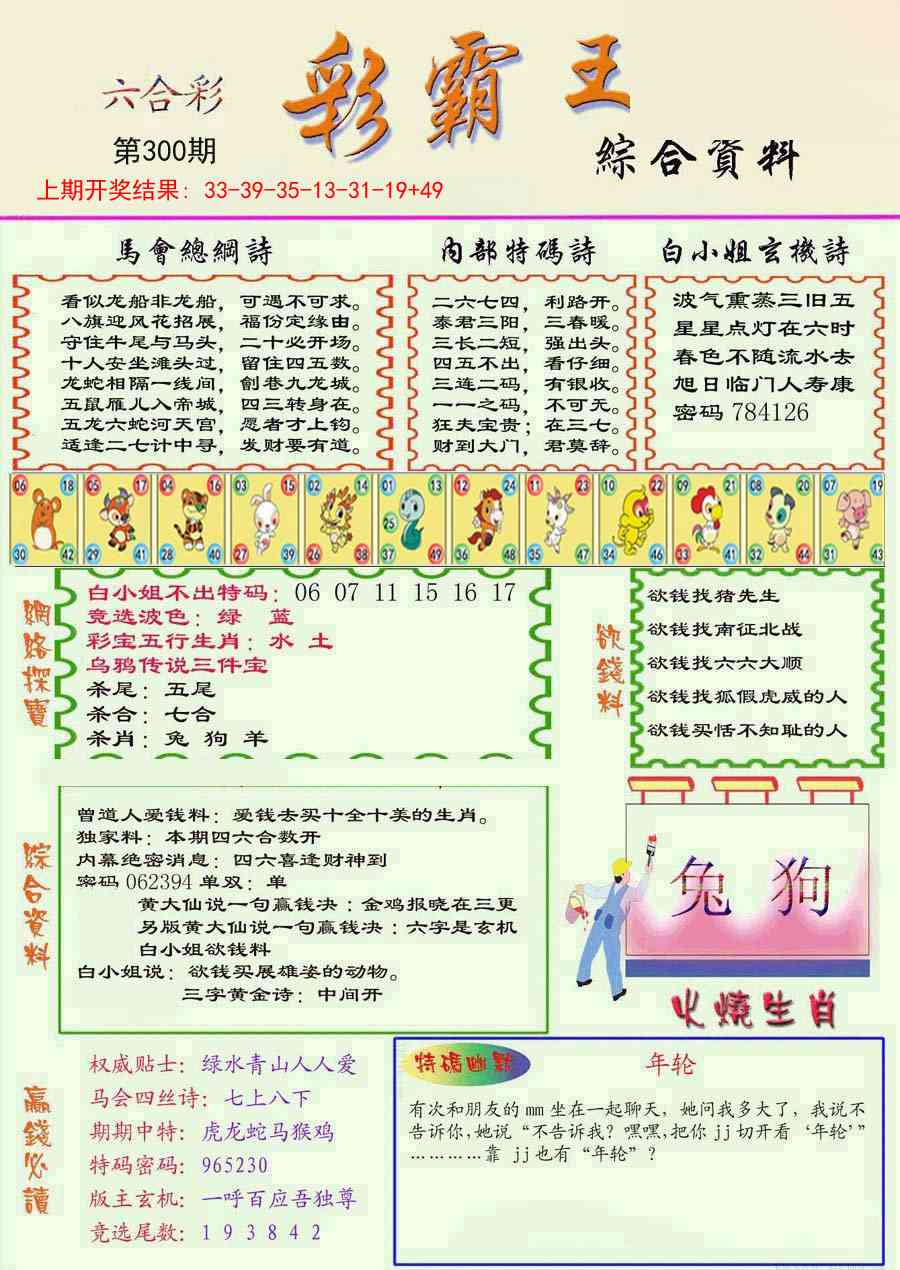 六合彩
彩霸王
第300期
綜合資料
上期开奖结果: 33-39-35-13-31-19+49
馬會總綱詩
看似龙船非龙船，可遇不可求。
八旗迎风花招展，福份定缘由。
守住牛尾与马头，二十必开场。
十人安坐滩头过，留住四五数。
龙蛇相隔一线间，劊巷九龙城。
五鼠雁儿入帝城，四三转身在。
五龙六蛇河天宫，忍者才上钩。
适逢二七计中寻，发财要有道。
内部特碼詩
二六七四，利路开。
泰君三阳，三春暖。
三长二短，强出头。
四五不出，看仔细。
三连二码，有银收。
一一之码，不可无。
狂夫宝贵；在三七。
财到大门，君莫辞。
白小姐玄機詩
波气熏蒸三旧五
星星点灯在六时
春色不随流水去
旭日临门人寿康
密码 784126
06 18 05 17 04 16 03 15 02 14 01 13 12 24 11 23 10 22 09 21 08 20 07 19
25
30 42 29 41 28 40 27 39 26 38 37 49 36 48 35 47 34 46 33 41 32 44 31 43
網路探寶
白小姐不出特码：06 07 11 15 16 17
竞选波色：绿 蓝
彩宝五行生肖：水 土
乌鸦传说三件宝
杀尾：五尾
杀合：七合
杀肖：兔 狗 羊
欲錢料
欲钱找猪先生
欲钱找南征北战
欲钱找六六大顺
欲钱找狐假虎威的人
欲钱买恬不知耻的人
綜合資料
曾道人爱钱料：爱钱去买十全十美的生肖。
独家料：本期四六合数开
内幕绝密消息：四六喜逢财神到
密码 062394 单双：单
黄大仙说一句赢钱决：金鸡报晓在三更
另版黄大仙说一句赢钱决：六字是玄机
白小姐欲钱料
白小姐说：欲钱买展雄姿的动物。
三字黄金诗：中间开
兔 狗
火燒生肖
贏錢必讀
权威贴士：绿水青山人人爱
马会四丝诗：七上八下
期期中特：虎龙蛇马猴鸡
特码密码：965230
版主玄机：一呼百应吾独尊
竞选尾数：1 9 3 8 4 2
特碼幽默
年轮
有次和朋友的mm坐在一起聊天，她问我多大了，我说不
告诉你,她说“不告诉我？嘿嘿,把你jj切开看‘年轮’”
…………靠 jj也有“年轮”？